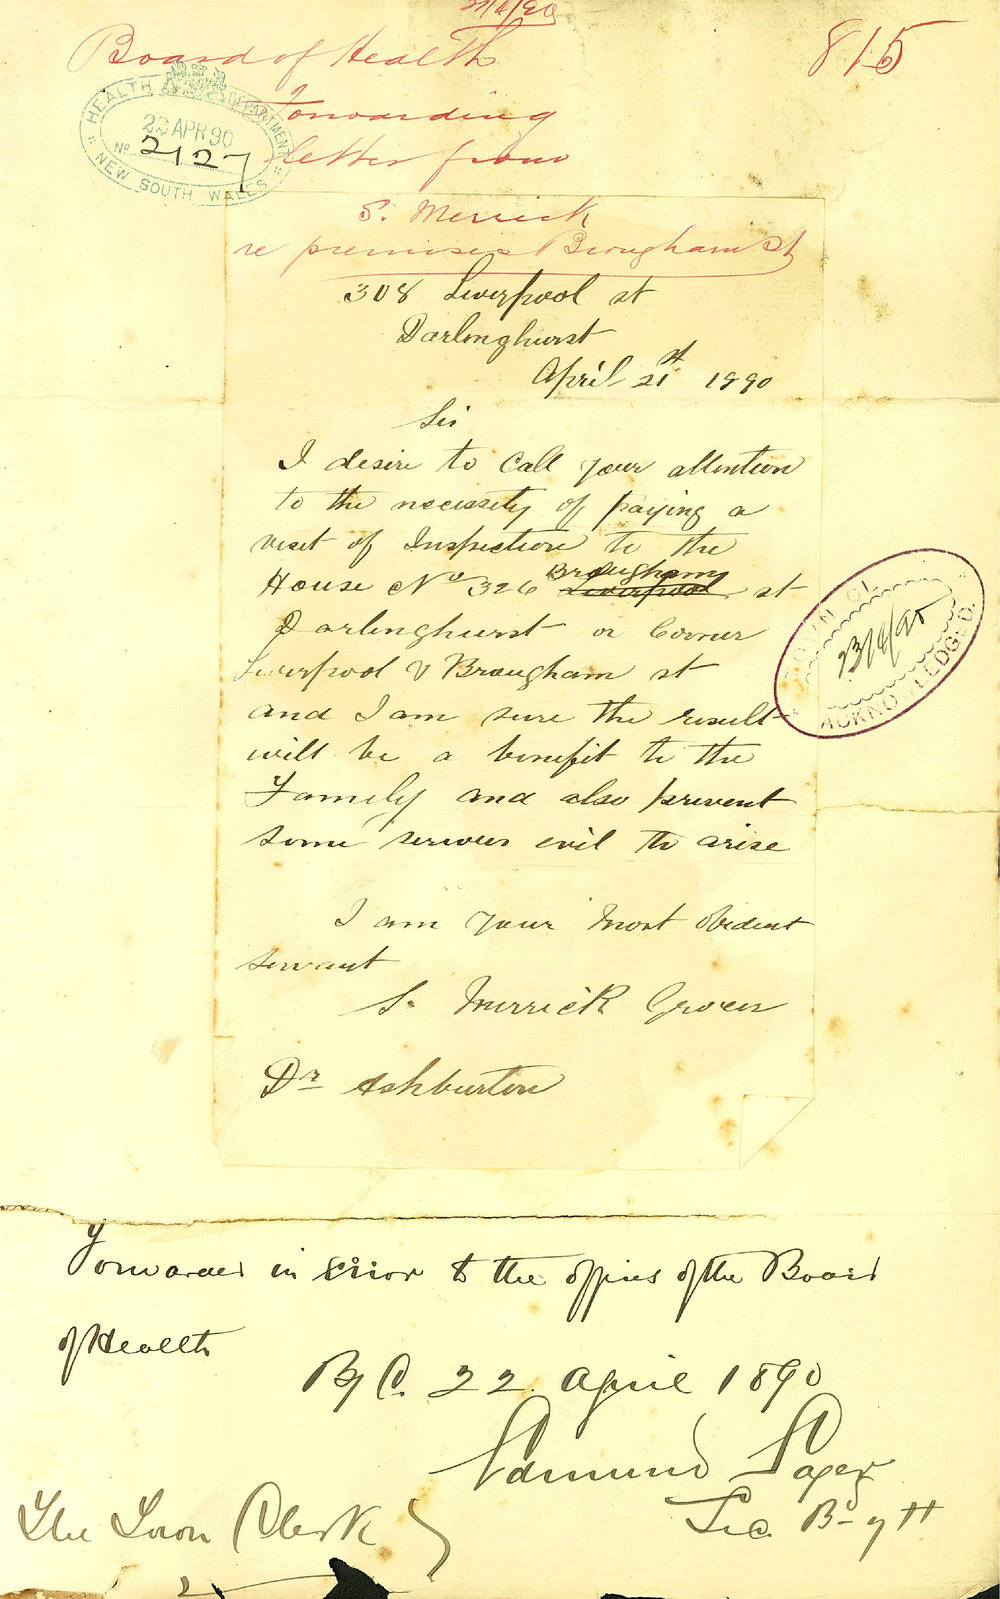 Board of Health
815
Forwarding
letter from
HEALTH DEPARTMENT
22 APR 90
No 2127
NEW SOUTH WALES
S. Merrick
re premises Brougham St
308 Liverpool st
Darlinghurst
April 21st 1890
Sir
I desire to Call your attention
to the necessity of paying a
visit of Inspection to the
House No 326 Brougham Liverpool st
Darlinghurst or Corner
Liverpool & Brougham st
and I am sure the result
will be a benefit to the
Family and also prevent
some serious evil to arise
ACKNOWLEDGED
23/4/90
I am your most obedient
servant
S. Merrick Grocer
Dr Ashburton
Forwarded in error to the offices of the Board
of Health
B, C. 22 April 1890
Edmund Sager
Sec. B- of H
The Town Clerk